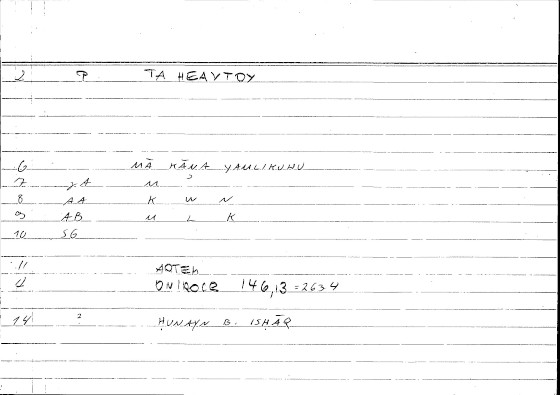 2 P TA HEAVTOY
6 MĀ KĀNA YAMLIKUHU
7 γA M
8 AA K W N
9 AB M L K
10 SG
11 ARTEM
ONIROCR 146,13 = 263 4
14 ? ḤUNAYN B. ISHĀQ